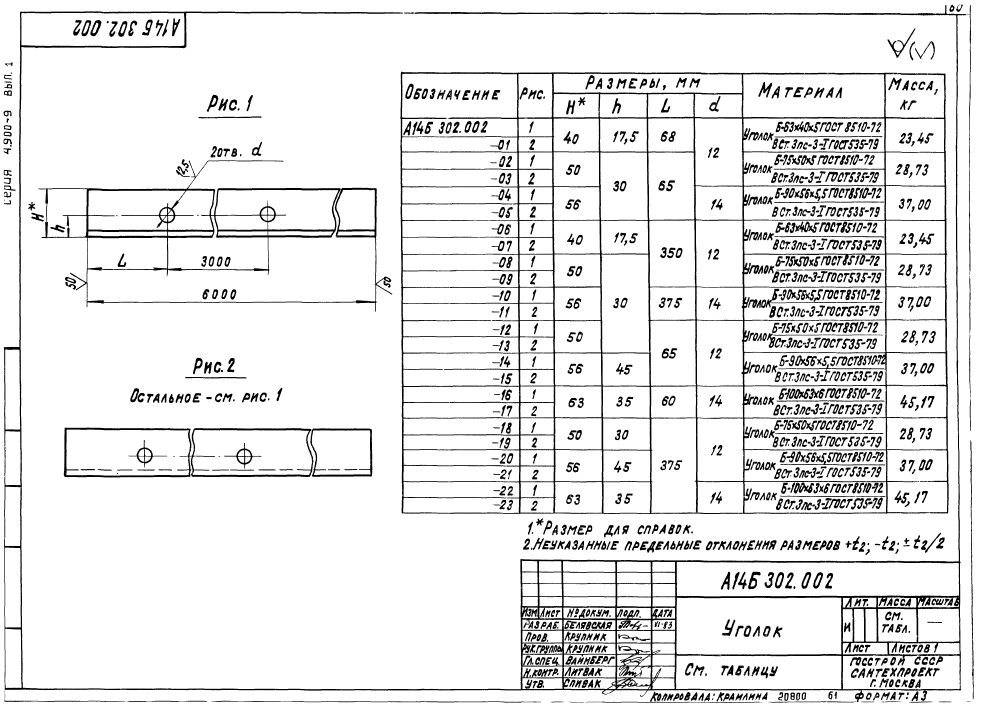 60
А14Б 302.002
серия 4.900-9 вып. 1
Рис. 1
2отв. d
12,5
H*
h
L
3000
6000
50
50
Рис. 2
Остальное – см. рис. 1
Обозначение Рис. Размеры, мм Материал Масса, кг
H* h L d
А14Б 302.002 1 40 17,5 68 12 Уголок Б-63х40х5 ГОСТ 8510-72 23,45
-01 2 ВСт.3пс-3-I ГОСТ 535-79
-02 1 50 30 65 Уголок Б-75х50х5 ГОСТ 8510-72 28,73
-03 2 ВСт.3пс-3-I ГОСТ 535-79
-04 1 56 14 Уголок Б-90х56х5,5 ГОСТ 8510-72 37,00
-05 2 ВСт.3пс-3-I ГОСТ 535-79
-06 1 40 17,5 350 12 Уголок Б-63х40х5 ГОСТ 8510-72 23,45
-07 2 ВСт.3пс-3-I ГОСТ 535-79
-08 1 50 30 Уголок Б-75х50х5 ГОСТ 8510-72 28,73
-09 2 ВСт.3пс-3-I ГОСТ 535-79
-10 1 56 375 14 Уголок Б-90х56х5,5 ГОСТ 8510-72 37,00
-11 2 ВСт.3пс-3-I ГОСТ 535-79
-12 1 50 65 12 Уголок Б-75х50х5 ГОСТ 8510-72 28,73
-13 2 ВСт.3пс-3-I ГОСТ 535-79
-14 1 56 45 Уголок Б-90х56х5,5 ГОСТ 8510-72 37,00
-15 2 ВСт.3пс-3-I ГОСТ 535-79
-16 1 63 35 60 14 Уголок Б-100х63х6 ГОСТ 8510-72 45,17
-17 2 ВСт.3пс-3-I ГОСТ 535-79
-18 1 50 30 375 12 Уголок Б-75х50х5 ГОСТ 8510-72 28,73
-19 2 ВСт.3пс-3-I ГОСТ 535-79
-20 1 56 45 Уголок Б-90х56х5,5 ГОСТ 8510-72 37,00
-21 2 ВСт.3пс-3-I ГОСТ 535-79
-22 1 63 35 14 Уголок Б-100х63х6 ГОСТ 8510-72 45,17
-23 2 ВСт.3пс-3-I ГОСТ 535-79
1.*Размер для справок.
2. Неуказанные предельные отклонения размеров +t2; -t2; ± t2/2
А14Б 302.002
Изм Лист №докум. Подп. Дата
Разраб. Белявская VI-83
Пров. Крупник
Рук.группы Крупник
Гл.спец. Вайнберг
Н.контр. Литвак
Утв. Спивак
Уголок
См. таблицу
Лит. Масса Масштаб
И см. табл. —
Лист Листов 1
Госстрой СССР
Сантехпроект
г. Москва
Копировала: Крайлина 20800 61 Формат: А3